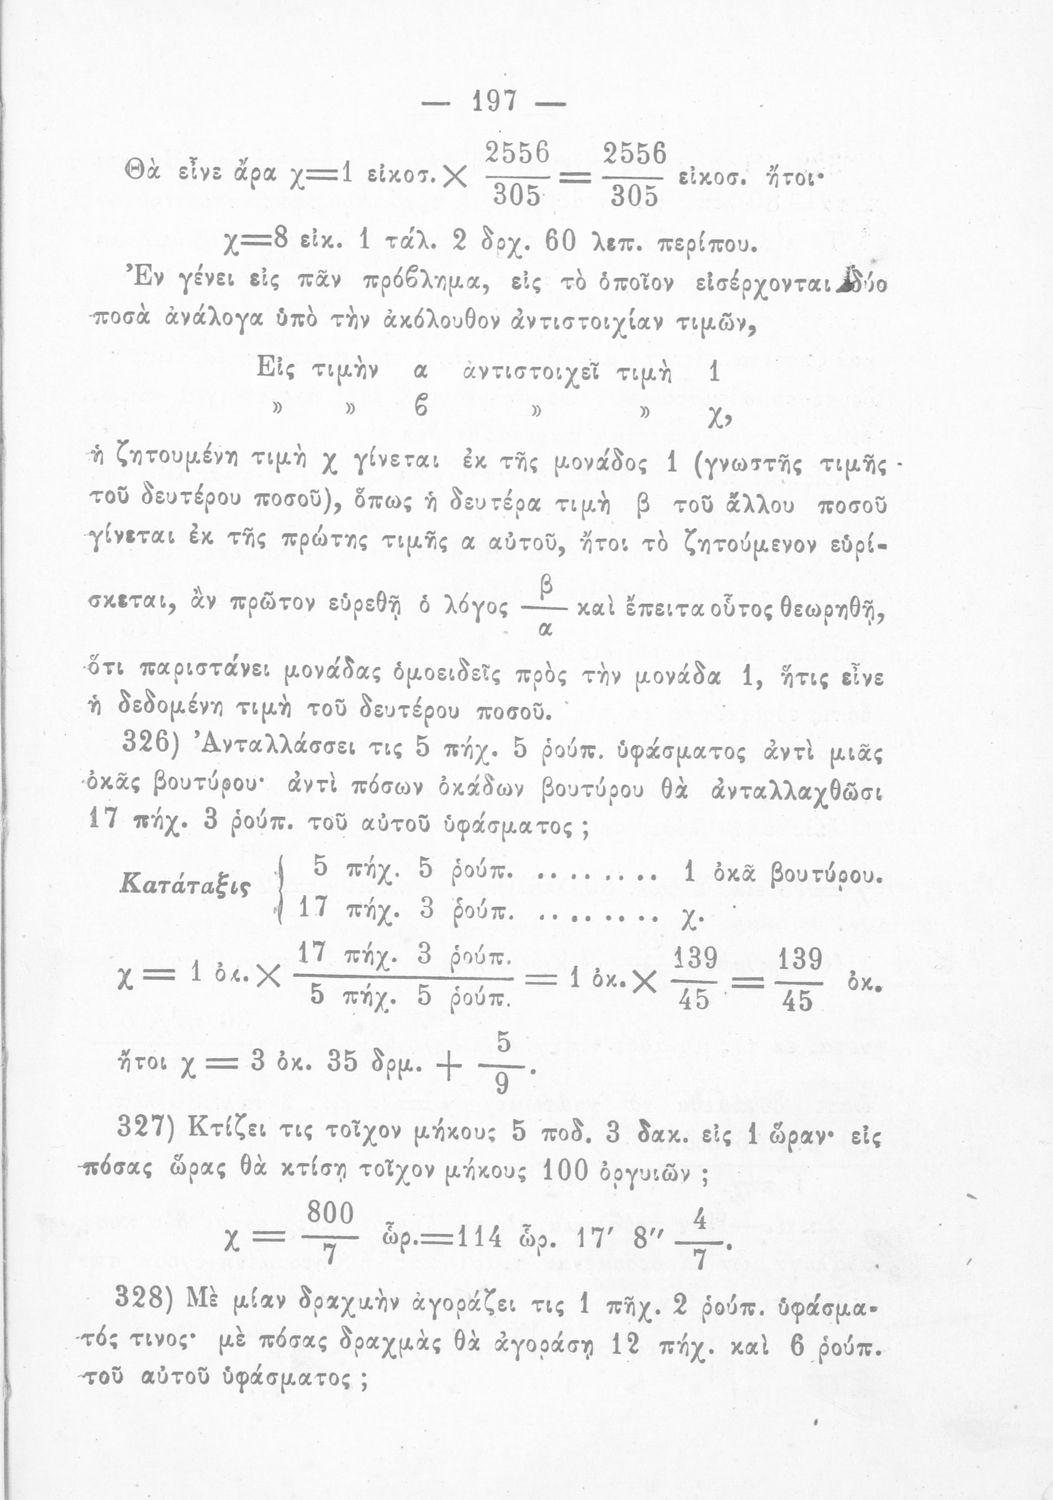 — 197 —
Θὰ εἶνε ἄρα χ=1 εἰκοσ. × 2556/305 = 2556/305 εἰκοσ. ἤτοι·
χ=8 εἰκ. 1 τάλ. 2 δρχ. 60 λεπ. περίπου.
Ἐν γένει εἰς πᾶν πρόβλημα, εἰς τὸ ὁποῖον εἰσέρχονται δύο
ποσὰ ἀνάλογα ὑπὸ τὴν ἀκόλουθον ἀντιστοιχίαν τιμῶν,
Εἰς τιμὴν α ἀντιστοιχεῖ τιμὴ 1
» » ϐ » » χ,
ἡ ζητουμένη τιμὴ χ γίνεται ἐκ τῆς μονάδος 1 (γνωστῆς τιμῆς
τοῦ δευτέρου ποσοῦ), ὅπως ἡ δευτέρα τιμὴ β τοῦ ἄλλου ποσοῦ
γίνεται ἐκ τῆς πρώτης τιμῆς α αὐτοῦ, ἤτοι τὸ ζητούμενον εὑρί-
σκεται, ἂν πρῶτον εὑρεθῇ ὁ λόγος β/α καὶ ἔπειτα οὗτος θεωρηθῇ,
ὅτι παριστάνει μονάδας ὁμοειδεῖς πρὸς τὴν μονάδα 1, ἥτις εἶνε
ἡ δεδομένη τιμὴ τοῦ δευτέρου ποσοῦ.
326) Ἀνταλλάσσει τις 5 πήχ. 5 ῥούπ. ὑφάσματος ἀντὶ μιᾶς
ὀκᾶς βουτύρου· ἀντὶ πόσων ὀκάδων βουτύρου θὰ ἀνταλλαχθῶσι
17 πήχ. 3 ῥούπ. τοῦ αὐτοῦ ὑφάσματος ;
Κατάταξις { 5 πήχ. 5 ῥούπ. ......... 1 ὀκᾶ βουτύρου.
17 πήχ. 3 ῥούπ. ......... χ.
χ = 1 ὀκ. × 17 πήχ. 3 ῥούπ./5 πήχ. 5 ῥούπ. = 1 ὀκ. × 139/45 = 139/45 ὀκ.
ἤτοι χ = 3 ὀκ. 35 δρμ. + 5/9.
327) Κτίζει τις τοῖχον μήκους 5 ποδ. 3 δακ. εἰς 1 ὥραν· εἰς
πόσας ὥρας θὰ κτίσῃ τοῖχον μήκους 100 ὀργυιῶν ;
χ = 800/7 ὧρ.=114 ὧρ. 17′ 8″ 4/7.
328) Μὲ μίαν δραχμὴν ἀγοράζει τις 1 πῆχ. 2 ῥούπ. ὑφάσμα-
τός τινος· μὲ πόσας δραχμὰς θὰ ἀγοράσῃ 12 πήχ. καὶ 6 ῥούπ.
τοῦ αὐτοῦ ὑφάσματος ;